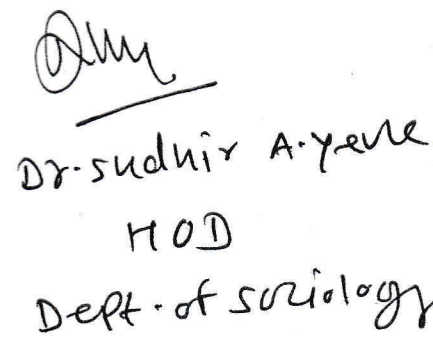 Dr. Sudhir A. Yevle
HOD
Dept. of Sociology